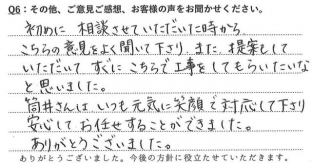 Q6：その他、ご意見ご感想、お客様の声をお聞かせください。
初めに 相談させていただいた時から
こちらの意見をよく聞いて下さり、また、提案もして
いただいて すぐに こちらで工事をしてもらいたいな
と思いました。
筒井さんは いつも 元気に 笑顔で 対応して下さり
安心して お任せすることができました。
ありがとうございました。
ありがとうございました。今後の方針に役立たせていただきます。